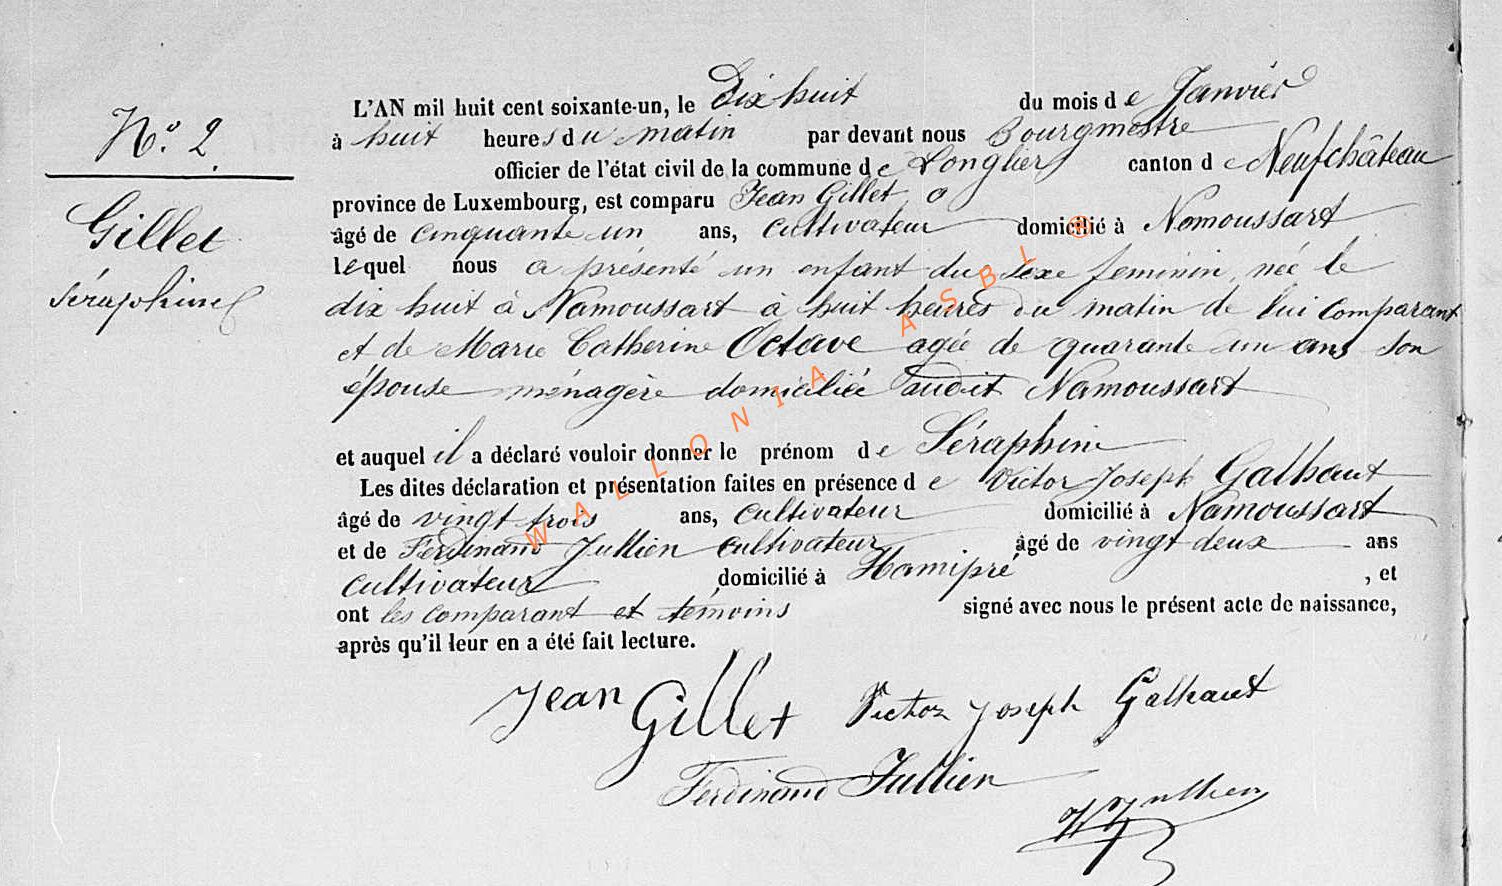 N.º 2.
Gillet
Séraphine
L'AN mil huit cent soixante-un, le Dix huit du mois de Janvier
à huit heures du matin par devant nous Bourgmestre
officier de l'état civil de la commune de Longlier canton de Neufchâteau
province de Luxembourg, est comparu Jean Gillet
âgé de cinquante un ans, cultivateur domicilié à Namoussart
lequel nous a présenté un enfant du sexe feminin, née le
dix huit à Namoussart à huit heures du matin de lui comparant
et de Marie Catherine Octave agée de quarante un ans son
épouse ménagère domiciliée audit Namoussart
et auquel il a déclaré vouloir donner le prénom de Séraphine
Les dites déclaration et présentation faites en présence de Victor Joseph Galhaut
âgé de vingt trois ans, cultivateur domicilié à Namoussart
et de Ferdinand Jullien cultivateur âgé de vingt deux ans
cultivateur domicilié à Hamipré , et
ont les comparant et témoins signé avec nous le présent acte de naissance,
après qu'il leur en a été fait lecture.
Jean Gillet Victor Joseph Galhaut
Ferdinand Jullien
Jullien
WALLONIA ASBL ®